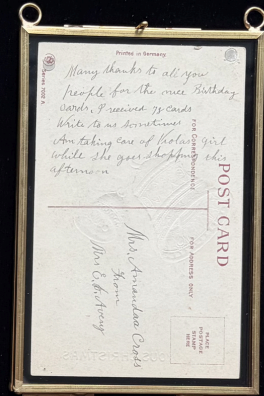 Printed in Germany
Series 7002 A
Many thanks to all you
people for the nice Birthday
cards, I received 79 cards
Write to us sometimes
Am taking care of Violas girl
while she goes shopping this
afternoon
POST CARD
FOR CORRESPONDENCE
FOR ADDRESS ONLY
Mrs. Amandaa Cross
from
Mrs E. H. Avery
PLACE
POSTAGE
STAMP
HERE